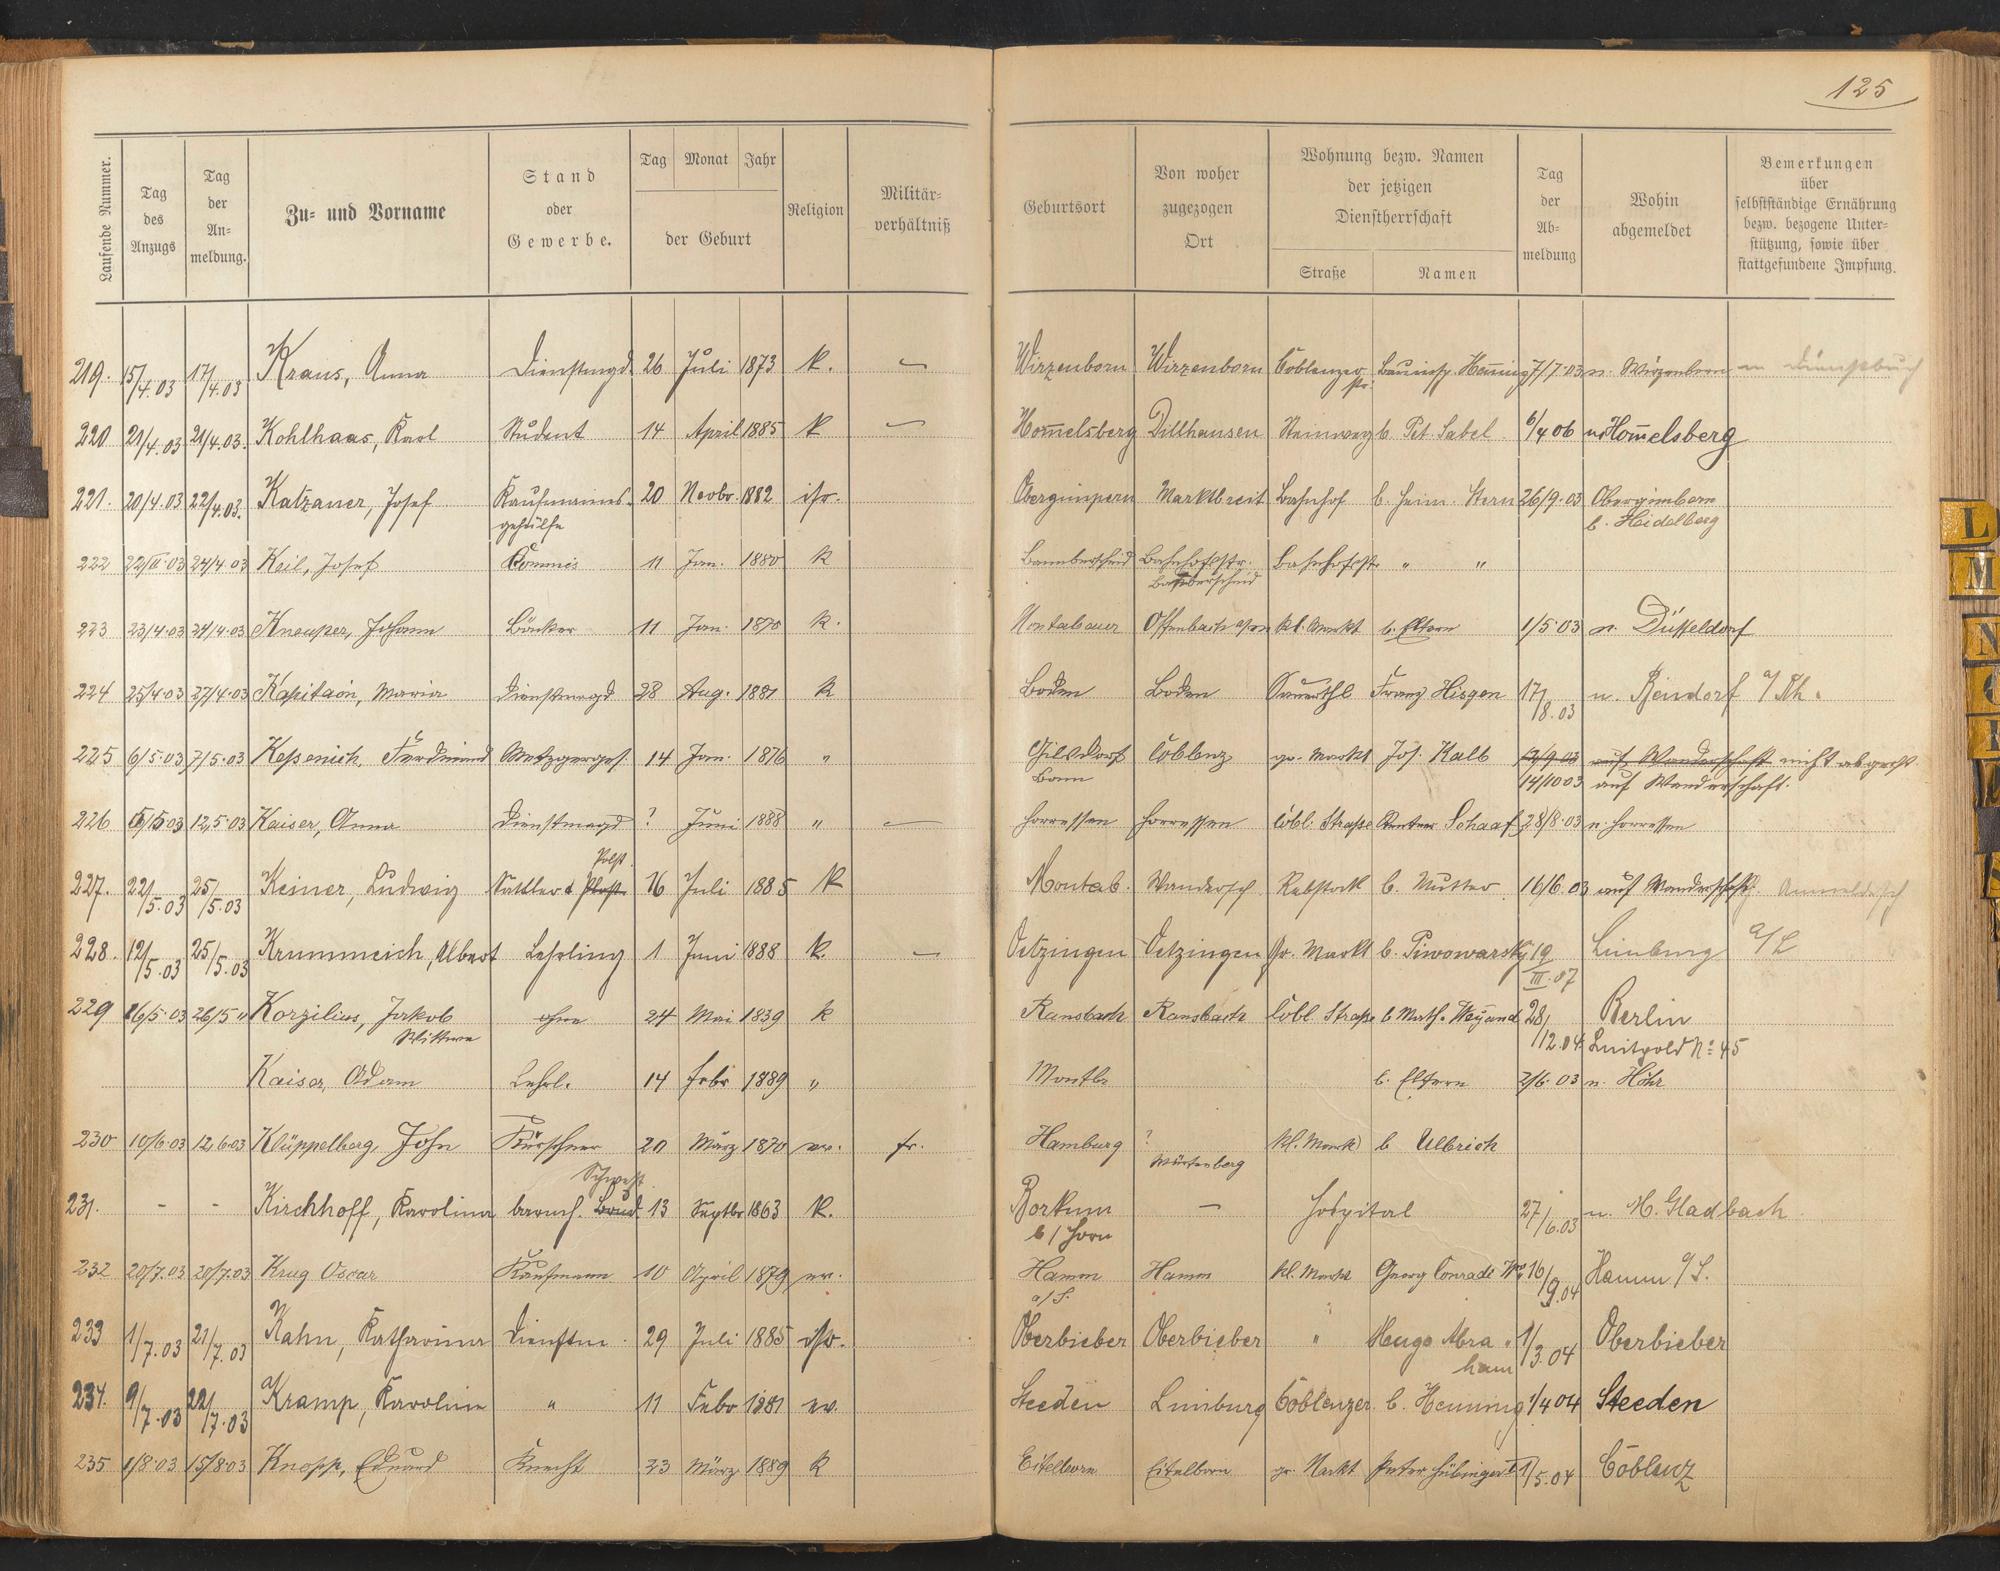 125
Laufende Nummer. Tag des Anzugs Tag der An-meldung. Zu- und Vorname Stand oder Gewerbe. Tag Monat Jahr der Geburt Religion Militär-verhältniß Geburtsort Von woher zugezogen Ort Wohnung bezw. Namen der jetzigen Dienstherrschaft Straße Namen Tag der Ab-meldung Wohin abgemeldet Bemerkungen über selbstständige Ernährung bezw. bezogene Unter-stützung, sowie über stattgefundene Impfung.
219. 15/4.03 17/4.03 Kraus, Anna Dienstmgd. 26 Juli 1873 k. — Wirzenborn Wirzenborn Coblenzer str. Bauinsp. Henning 7/7.03 n. Wirzenborn Dienstbuch
220 21/4.03 21/4.03. Kohlhaas, Karl Student 14 April 1885 k — Hom̄elsberg Dillhausen Steinweg b. Pet. Sabel 6/4 06 n. Hom̄elsberg
221. 20/4.03 22/4.03. Katzauer, Josef Kaufmanns- 20 Novbr. 1882 isr. Obergimpern Marktbreit Bahnhof b. Heim. Stern 26/9.03 Obergimbern
gehülfe b. Heidelberg
222 22/III.03 24/4.03 Keil, Josef Commis 11 Jan. 1880 k Bannberscheid Bahnhofstr. Bahnhofstr. " "
Bannberscheid
223 23/4.03 24/4.03 Kneuper, Johann Bäcker 11 Jan. 1870 k. Montabaur Offenbach a/m kl. Markt b. Eltern 1/5.03 n. Düsseldorf
224 25/4.03 27/4.03 Kapitain, Maria Dienstmagd 28 Aug. 1881 k Boden Boden Sauerthl Franz Hisgen 17/8.03 n. Bendorf a/Rh.
225 6/5.03 7/5.03 Kessenich, Ferdinand Metzgerges. 14 Jan. 1876 " Gilsdorf Coblenz gr. Markt Jos. Kalb 12/9.03 auf Wanderschaft nicht abgerst.
Bonn 14/10 03 auf Wanderschaft.
226 5/5.03 12/5.03 Kaiser, Anna Dienstmagd ? Juni 1888 " — Horressen Horressen Cobl. Straße Schaaf 28/8.03 n. Horressen
Polst.
227. 22/5.03 25/5.03 Keiner, Ludwig Sattler & 16 Juli 1885 k Montab. Wandersch Rebstock b. Mutter 16/6.03 auf Wanderschaft.
228. 12/5.03 25/5.03 Krummeich, Albert Lehrling 1 Juni 1888 k. — Oetzingen Oetzingen Gr. Markt b. Piwowarsky 19/III.07 Limburg a/L
229 16/5.03 26/5 " Korzilius, Jakob ohne 24 Mai 1839 k Ransbach Ransbach Cobl. Straße b Math. Weyand 28/12.04. Berlin
Wittwe Luitpold No 45
Kaiser, Adam Lehrl. 14 Febr 1889 " Montbr b. Eltern 2/6.03 n. Höhr
230 10/6.03 12/6.03 Klüppelberg, John Kürschner 20 März 1870 ev. fr. Hamburg ? kl. Markt b Ulbrich
Würtenberg
Schwest.
231. - - Kirchhoff, Karolina barmh. Brud. 13 Septbr 1863 k. Borkum — Hospital 27/6.03 n. M. Gladbach
b/Horn
232 20/7.03 20/7.03 Krug Oscar Kaufmann 10 April 1879 ev. Hamm Hamm kl. Markt Georg Conradi Ww. 16/9.04 Hamm a/S.
a/S.
233 1/7.03 21/7.03 Kahn, Katharina Dienstm. 29 Juli 1885 isr. Oberbieber Oberbieber " Hugo Abra- 1/3.04 Oberbieber
ham
234. 9/7.03 22/7.03 Kramp, Karoline " 11 Febr 1881 ev. Steeden Limburg Coblenzer b. Henning 1/4 04 Steeden
235 1/8.03 15/8.03 Knopp, Eduard Knecht 23 März 1889 k Eitelborn Eitelborn gr. Markt Peter Hübinger II 1/5.04 Coblenz
L
M
N